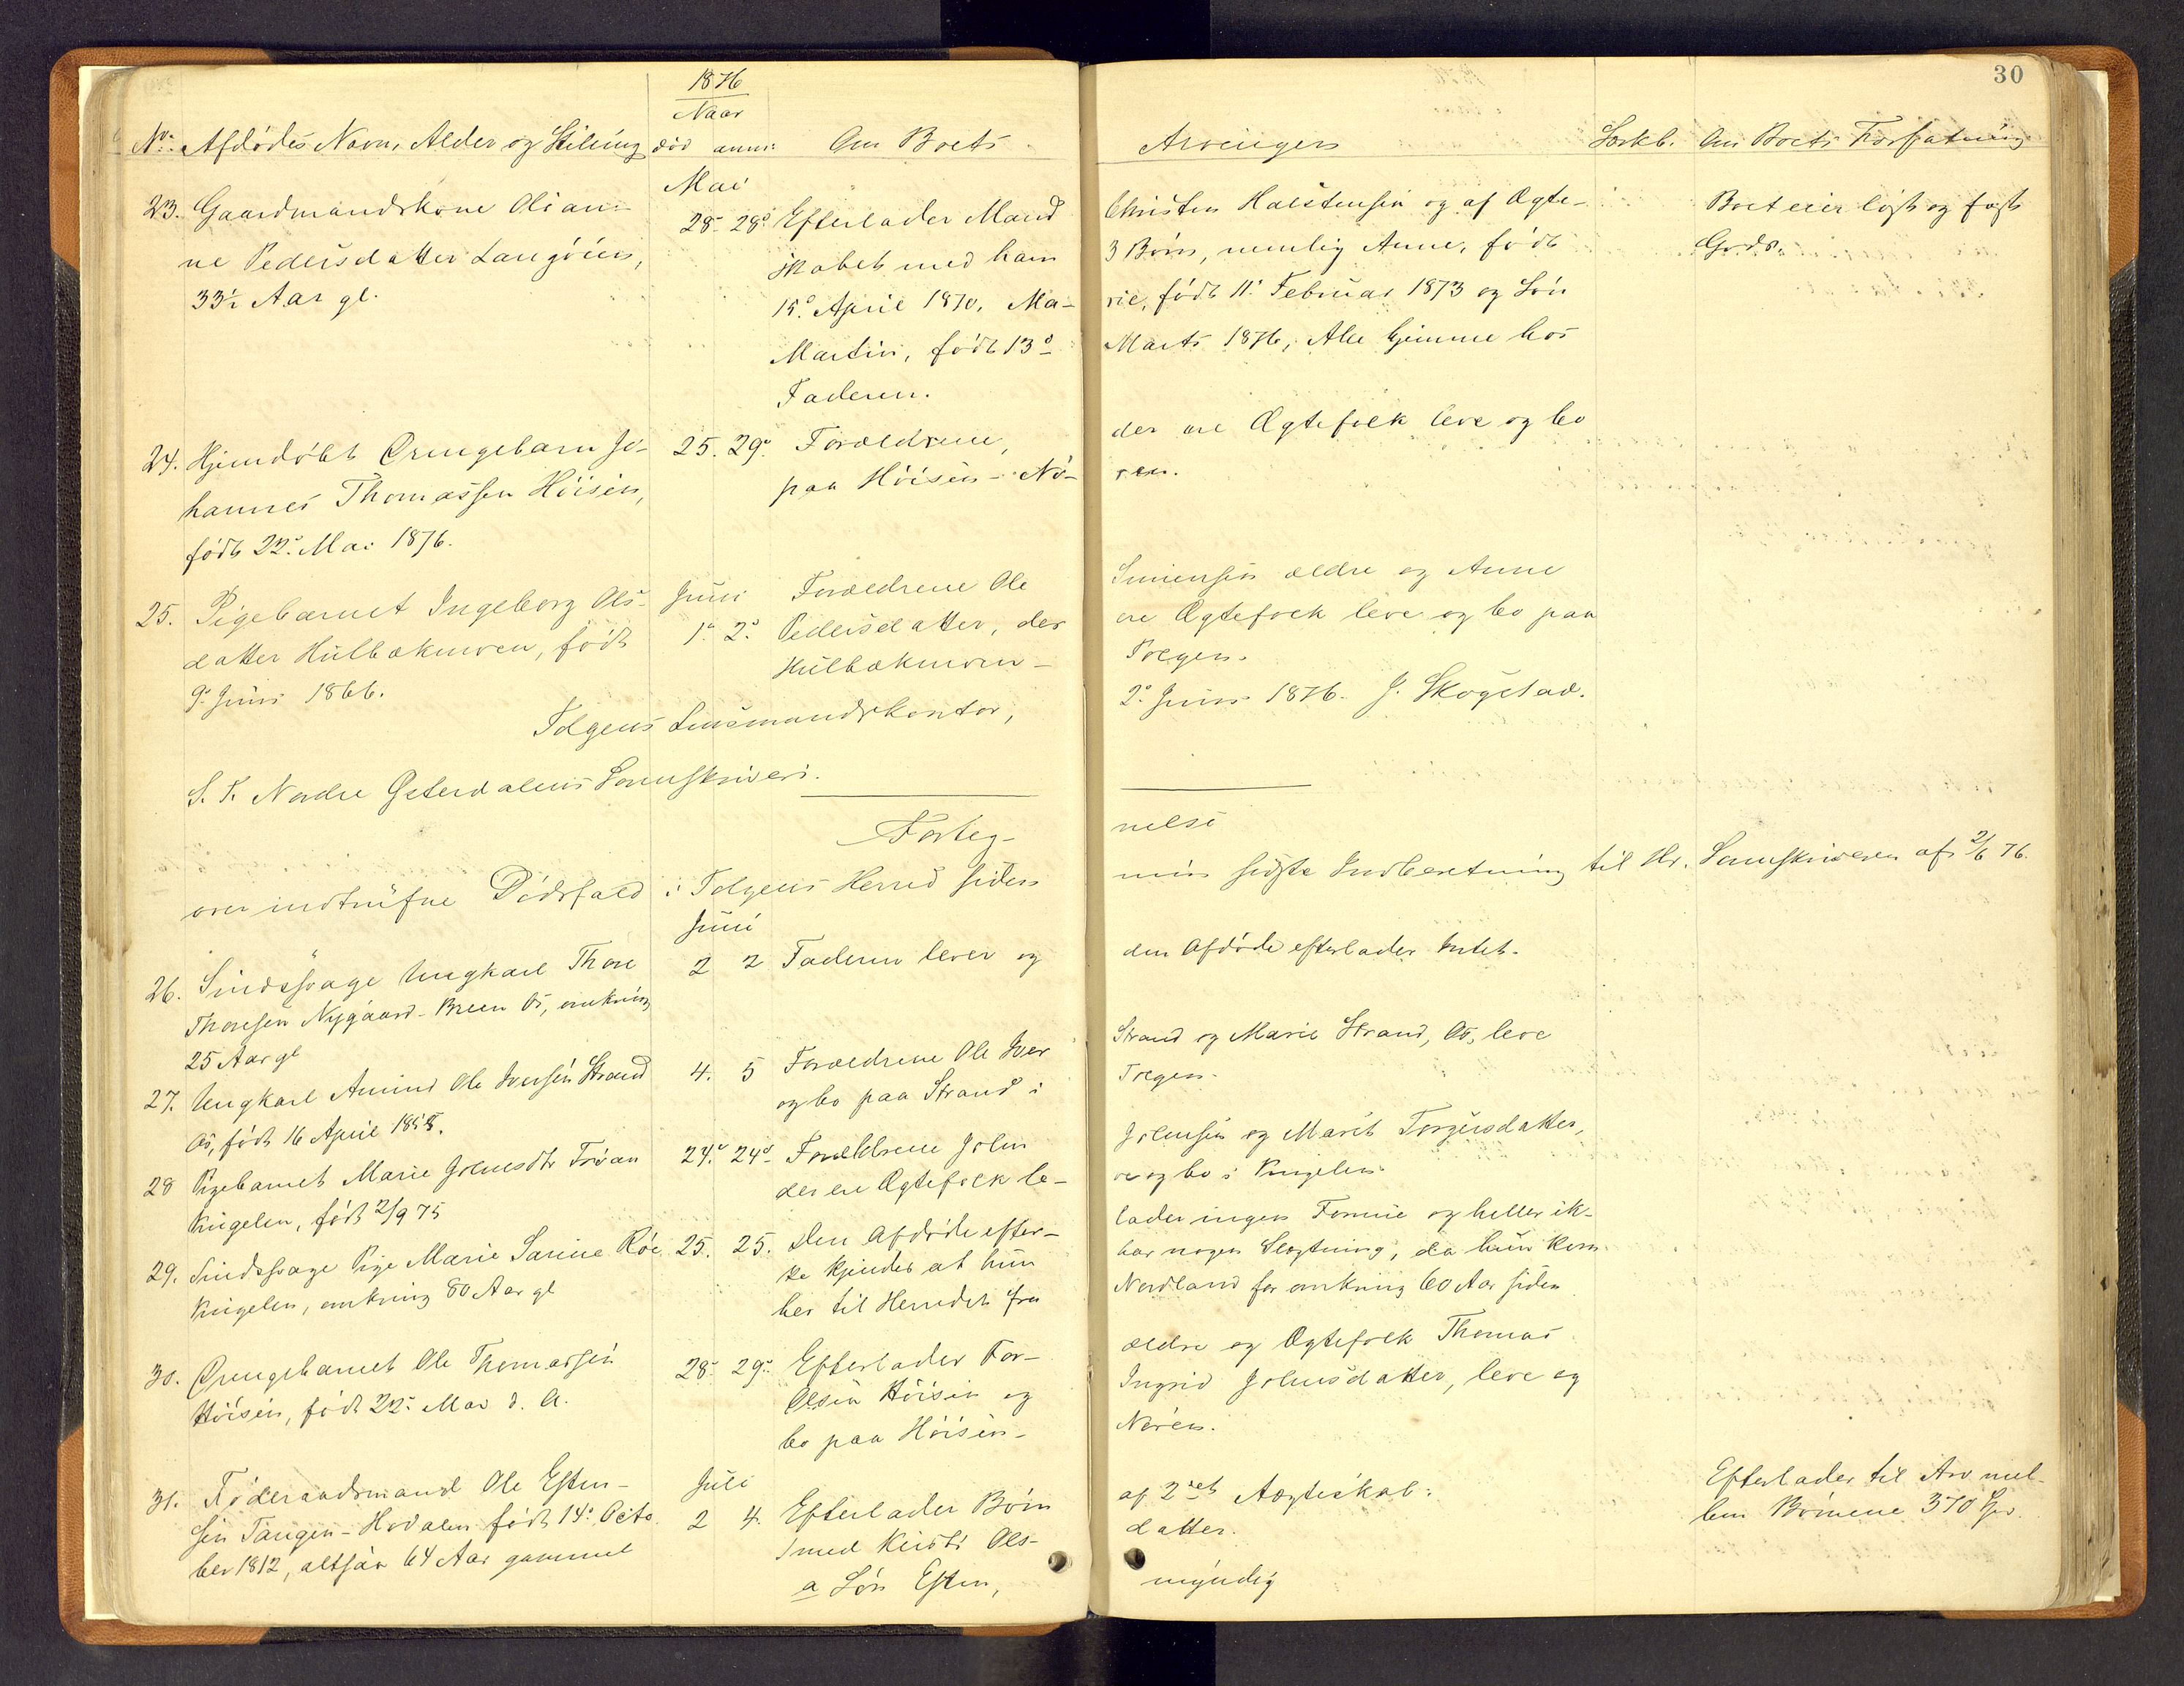 30
1876
Naar
No. Afdødes Navn, Alder og Stilling død anm: Om Boets Arvinger Særkb. Om Boets Forfatning
Mai
23. Gaardmandskone Olian- 28. 28. Efterlader Mand Christen Halstensen og af Ægte- Boet eier løst og fast
ne Pedersdatter Langøien, skabet med ham 3 Børn, nemlig Anne, født Gods.
33½ Aar gl. 15. April 1870, Ma- rie, født 11. Februar 1873 og Søn
Martin, født 13. Marts 1876, Alle hjemme hos
Faderen.
24. Hjemdøbt Drengebarn Jo- 25. 29. Forældrene, der ere Ægtefolk leve og bo
hannes Thomassen Höisen, paa Höisen - Nö- ren.
født 22. Mai 1876.
25. Pigebarnet Ingeborg Ols- Juni Forældrene Ole Simensen ældre og Anne
datter Hulbækmoen, født 1. 2. Pedersdatter, der ere Ægtefolk leve og bo paa
9. Juni 1866. Hulbækmoen - Tolgen.
Tolgens Lensmandskontor, 2. Juni 1876. J. Skogstad.
S. T. Nordre Østerdalens Sorenskriveri.
Forteg- nelse
over indtrufne Dødsfald i Tolgens Herred siden min sidste Indberetning til Hr. Sorenskriveren af 2/6 76.
Juni
26. Sindssvage Ungkarl Thore 2 2 Faderen lever og den Afdøde efterlader Intet.
Thoresen Nygaard - Breen Os, omkring
25 Aar gl
27. Ungkarl Amund Ole Iversen Strand 4. 5 Forældrene Ole Iver Strand og Marie Strand, Os, leve
Os, født 16 April 1855. og bo paa Strand i Tolgen.
28 Pigebarnet Marie Johnsdtr Trøan 24. 24. Forældrene John Johnsen og Marit Torgersdatter,
Vingelen, født 2/9 75 der ere Ægtefolk le- ve og bo i Vingelen.
29. Sindssvage Pige Marie Sarine Röe 25. 25. Den Afdøde efter- lader ingen Formue og heller ik-
Vingelen, omkring 80 Aar gl ke kjendes at hun har nogen Slægtning, da hun kom
her til Herredet fra Nordland for omkring 60 Aar siden
30. Drengebarnet Ole Thomassen 28. 29. Efterlader For- ældre og Ægtefolk Thomas
Höisen, født 22. Mai d. A. Olsen Höisen og Ingrid Johnsdatter, leve og
bo paa Höisen - Nören.
31. Föderaadsmand Ole Esten- Juli Efterlader til Arv mel-
sen Tangen - Hodalen født 14. Octo 2 4. Efterlader Børn af 2det Ægteskab: lem Børnene 370 Spd.
ber 1812, altsaa 64 Aar gammel med Kirsti Ols- datter.
a Søn Esten, myndig